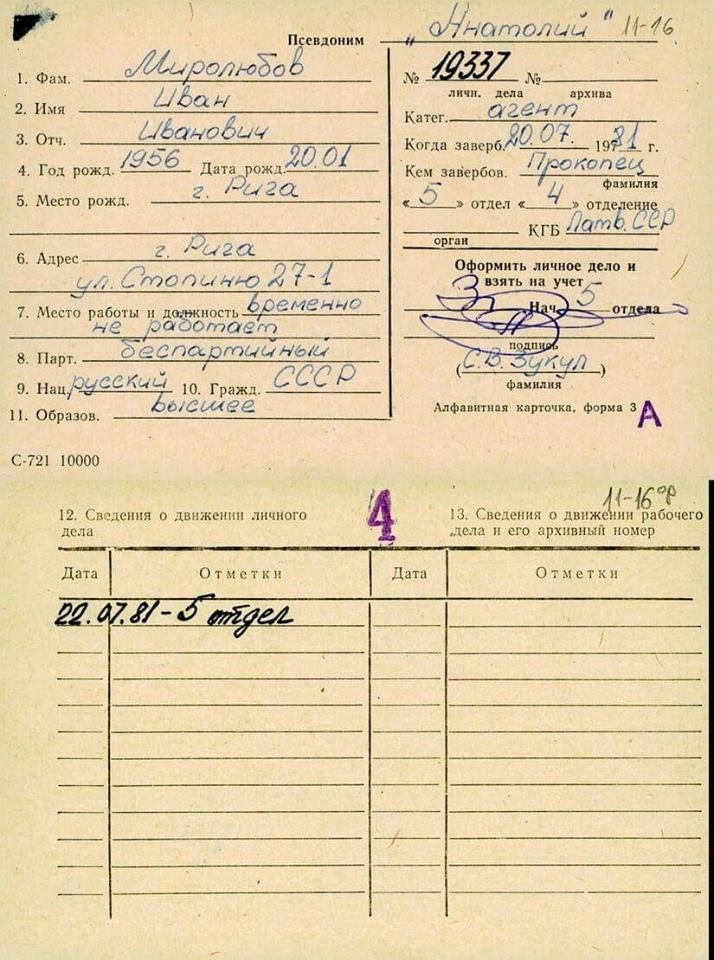 Псевдоним „Анатолий" 11-16
1. Фам. Миролюбов
2. Имя Иван
3. Отч. Иванович
4. Год рожд. 1956 Дата рожд. 20.01
5. Место рожд. г. Рига
6. Адрес г. Рига
ул. Стопиню 27-1
7. Место работы и должность временно
не работает
8. Парт. беспартийный
9. Нац. русский 10. Гражд. СССР
11. Образов. высшее
С-721 10000
№ 19337 №
личн. дела архива
Катег. агент
Когда заверб. 20.07. 1981 г.
Кем завербов. Прокопец
фамилия
«5» отдел «4» отделение
КГБ Латв. ССР
орган
Оформить личное дело и
взять на учет
Нач. 5 отдела
подпись
(С.В. Зукул)
фамилия
Алфавитная карточка, форма 3 А
4
11-16
12. Сведения о движении личного
дела
13. Сведения о движении рабочего
дела и его архивный номер
Дата Отметки Дата Отметки
22.07.81 - 5 отдел